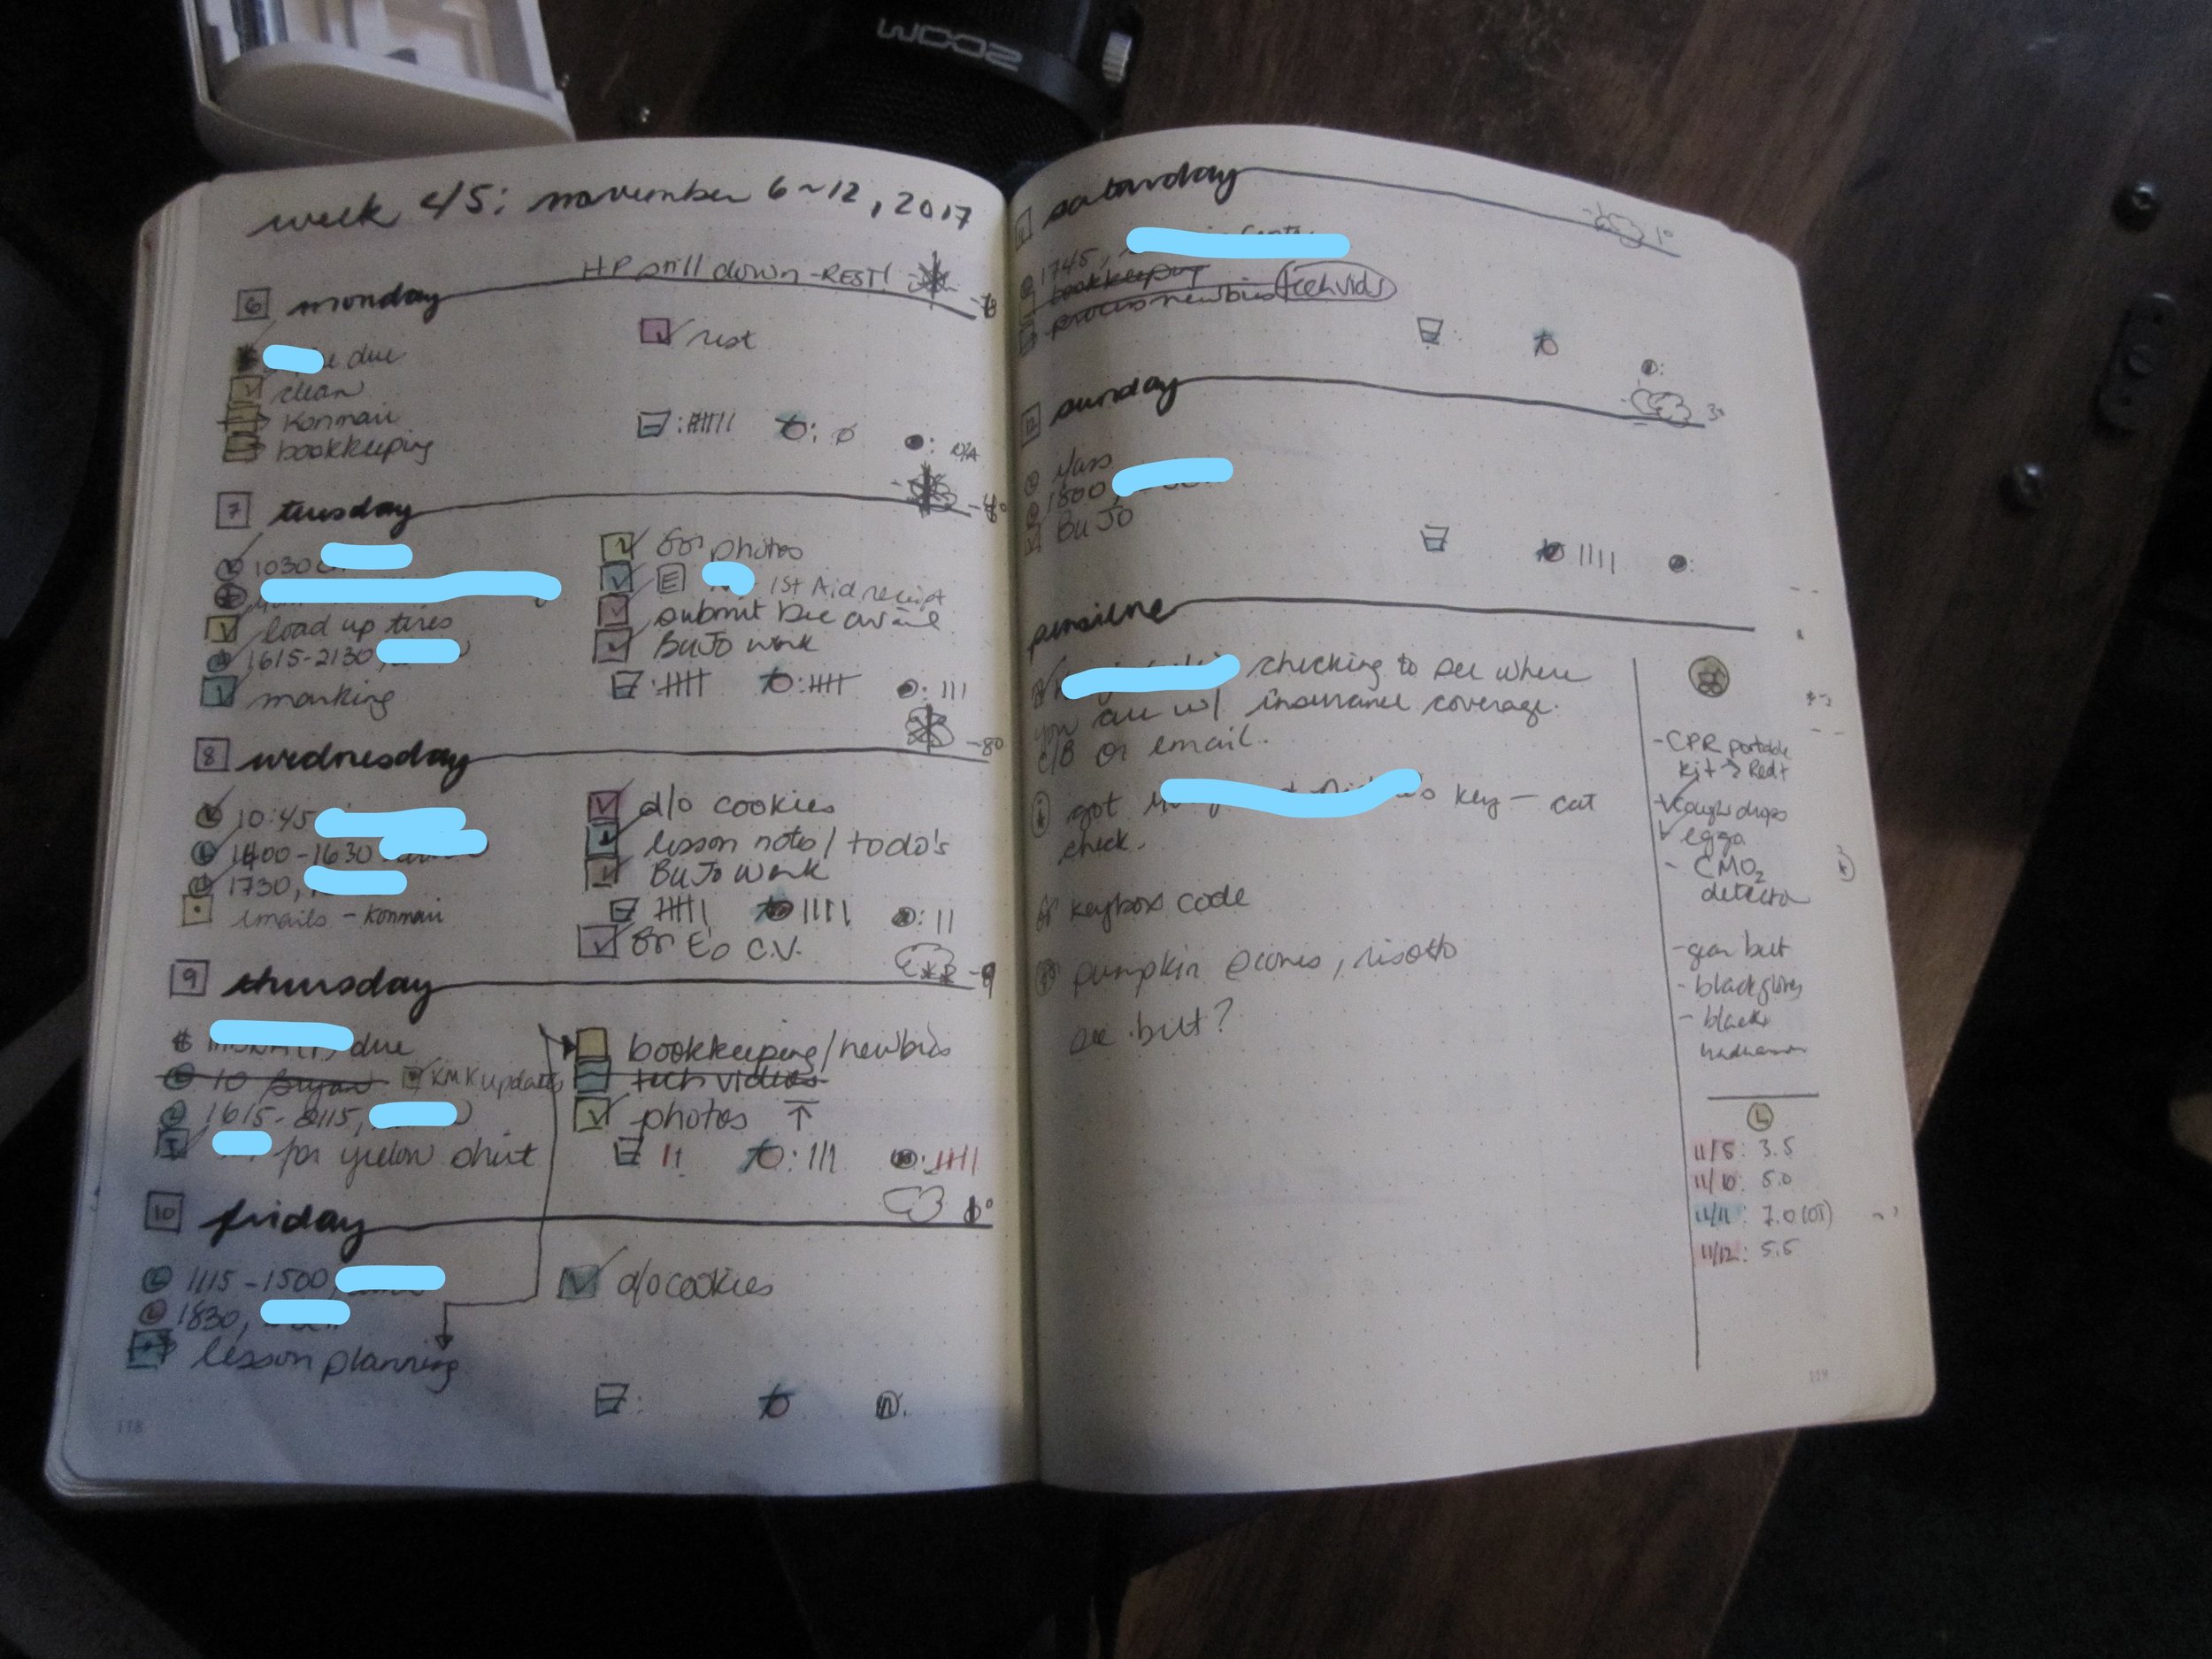 ZOOM
week 45: november 6~12, 2017
HP still down - REST!
6 monday
due
clean
Konmari
bookkeeping
rest
: Ø
: N/A
7 tuesday
1030
load up tires
1615-2130,
marking
photos
E 1st Aid receipt
submit Dec avail
BuJo work
8 wednesday
-8°
10:45
1400-1630
1730,
emails - Konmari
d/o cookies
lesson notes/todo's
BuJo work
E's C.V.
9 thursday
$ due
10 KMK updates
1615-2115,
for yellow shirt
bookkeeping/newbies
tech videos
photos
10 friday
1115-1500,
1830,
lesson planning
d/o cookies
118
saturday
1°
1745,
bookkeeping
process newbies tech vids
12 sunday
3°
Mass
1800,
BuJo
pensieve
checking to see where
you are w/ insurance coverage.
c/B or email.
got key - cat
check.
keybox code
pumpkin scones, risotto
- CPR portable
kit → Red+
cough drops
eggs
- CMO2
detector
- gear belt
- black gloves
- black
L
11/5: 3.5
11/10: 5.0
11/11: 7.0 (OT)
11/12: 5.5
119